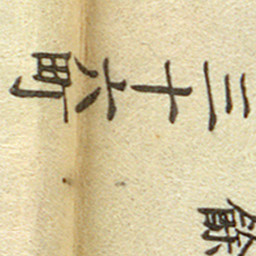 餘
三十六町